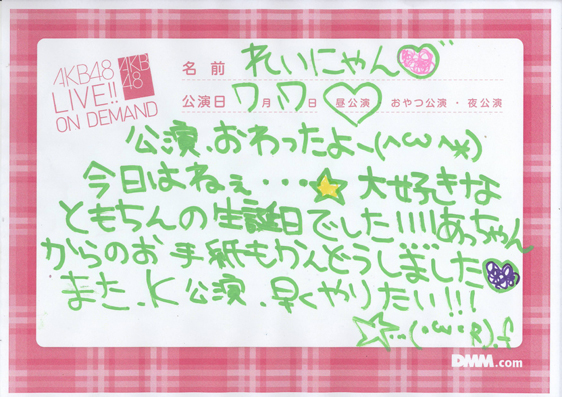 AKB48
LIVE!!
ON DEMAND
AKB
48
名前 れいにゃん
公演日 7月7日 昼公演・おやつ公演・夜公演
公演、おわったよ〜(^ω^*)
今日はねぇ・・・⭐大好きな
ともちんの生誕日でした!!!!あっちゃん
からのお手紙もかんどうしました
また、K公演、早くやりたい!!!
☆彡(・ω・R).f
DMM.com